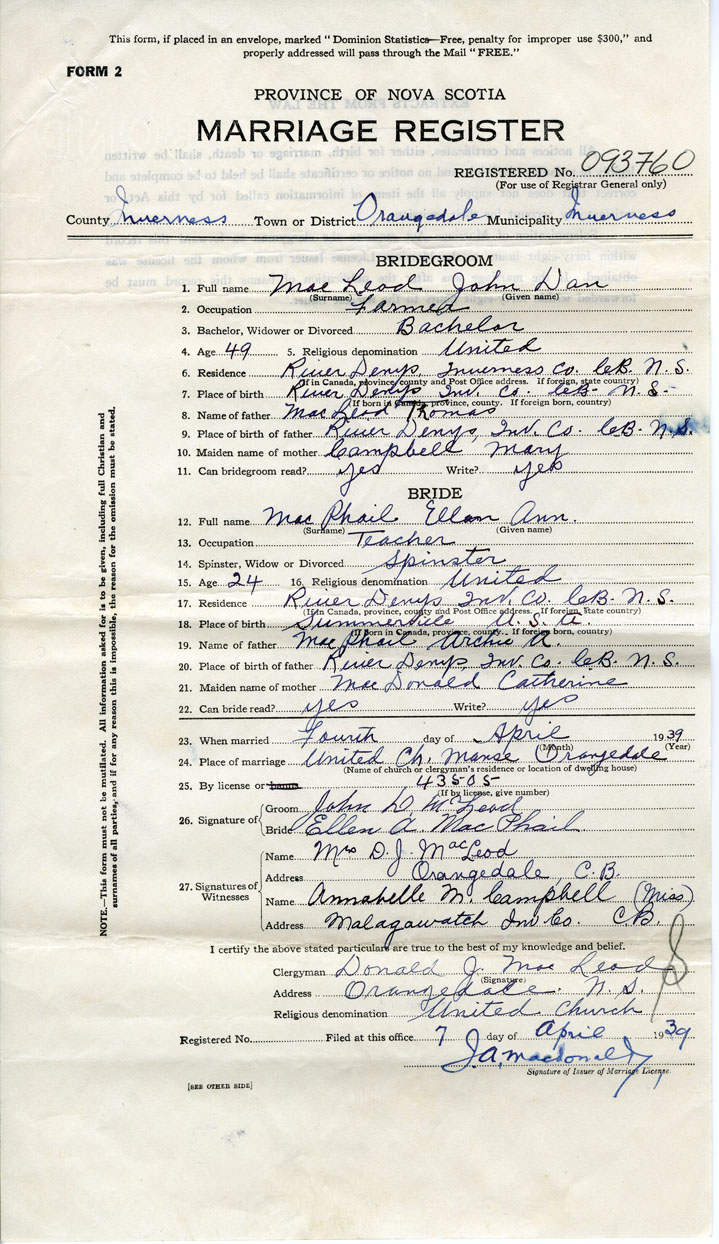 This form, if placed in an envelope, marked "Dominion Statistics—Free, penalty for improper use $300," and
properly addressed will pass through the Mail "FREE."
FORM 2
PROVINCE OF NOVA SCOTIA
MARRIAGE REGISTER
REGISTERED No. 093760
(For use of Registrar General only)
County Inverness Town or District Orangedale Municipality Inverness
BRIDEGROOM
1. Full name Mac Leod John Dan
(Surname) (Given name)
2. Occupation Farmer
3. Bachelor, Widower or Divorced Bachelor
4. Age 49 5. Religious denomination United
6. Residence River Denys, Inverness Co. C.B. N.S.
(If in Canada, province, county and Post Office address. If foreign, state country)
7. Place of birth River Denys Inv. Co. C.B. N.S.
(If born in Canada, province, county. If foreign born, country)
8. Name of father Mac Leod Thomas
9. Place of birth of father River Denys, Inv. Co. C.B. N.S.
10. Maiden name of mother Campbell Mary
11. Can bridegroom read? yes Write? yes
BRIDE
12. Full name Mac Phail Ellen Ann.
(Surname) (Given name)
13. Occupation Teacher
14. Spinster, Widow or Divorced Spinster
15. Age 24 16. Religious denomination United
17. Residence River Denys Inv. Co. C.B. N.S.
(If in Canada, province, county and Post Office address. If foreign, state country)
18. Place of birth Summerville U.S.A.
(If born in Canada, province, county. If foreign born, country)
19. Name of father Mac Phail Archie A.
20. Place of birth of father River Denys Inv. Co. C.B. N.S.
21. Maiden name of mother Mac Donald Catherine
22. Can bride read? yes Write? yes
23. When married Fourth day of April 1939
(Month) (Year)
24. Place of marriage United Ch. Manse Orangedale
(Name of church or clergyman's residence or location of dwelling house)
25. By license or banns 43505
(If by license, give number)
26. Signature of
Groom John D McLeod
Bride Ellen A. Mac Phail
27. Signatures of Witnesses
Name Mrs D. J. MacLeod
Address Orangedale, C.B.
Name Annabelle M. Campbell (Miss)
Address Malagawatch Inv Co. C.B.
I certify the above stated particulars are true to the best of my knowledge and belief.
Clergyman Donald J. Mac Leod
(Signature)
Address Orangedale. N.S.
Religious denomination United Church
Registered No. Filed at this office 7 day of April 1939
J.A. Macdonald
Signature of Issuer of Marriage License.
[SEE OTHER SIDE]
NOTE.—This form must not be mutilated. All information asked for is to be given, including full Christian and
surnames of all parties, and if for any reason this is impossible, the reason for the omission must be stated.